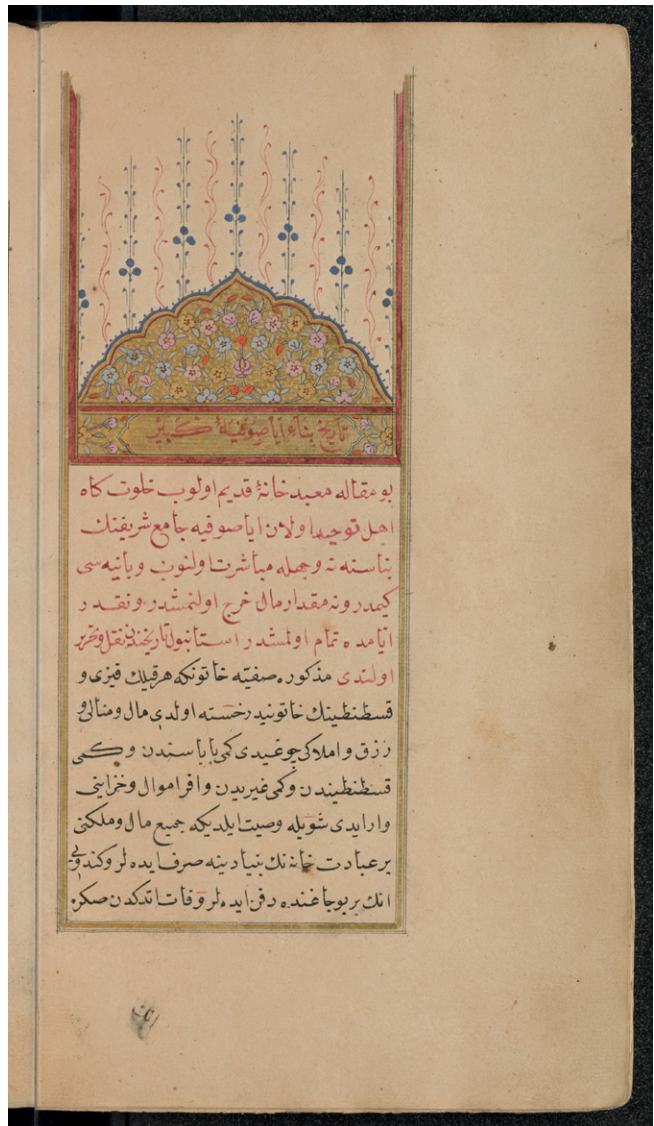 تاریخ بناء ایا صوفیهٔ کبیر
بو مقاله معبد خانهٔ قدیم اولوب خلوت کاه
اهل توحید اولان ایا صوفیه جامع شریفنك
بناسنه نه وجهله مباشرت اولنوب وبانیه سی
کیمدر ونه مقدار مال خرج اولنمشدر ونقدر
ایامده تمام اولمشدر استانبول تاریخندن نقل وتحریر
اولندی مذکوره صفیّه خاتونکه هرقیلك قیزی و
قسطنطینك خاتونیدر خسته اولدی مال ومنالی و
رزق واملاکی چوغیدی کمی باباسندن وکمی
قسطنطیندن وکمی غیریدن وافر اموال وخزاینی
وارایدی شویله وصیت ایلدیکه جمیع مال وملکنی
بر عبادت خانه نك بنیادینه صرف ایده لر وکندویی
انك بر بوجاغنده دفن ایده لر وفات اتدکدن صکره